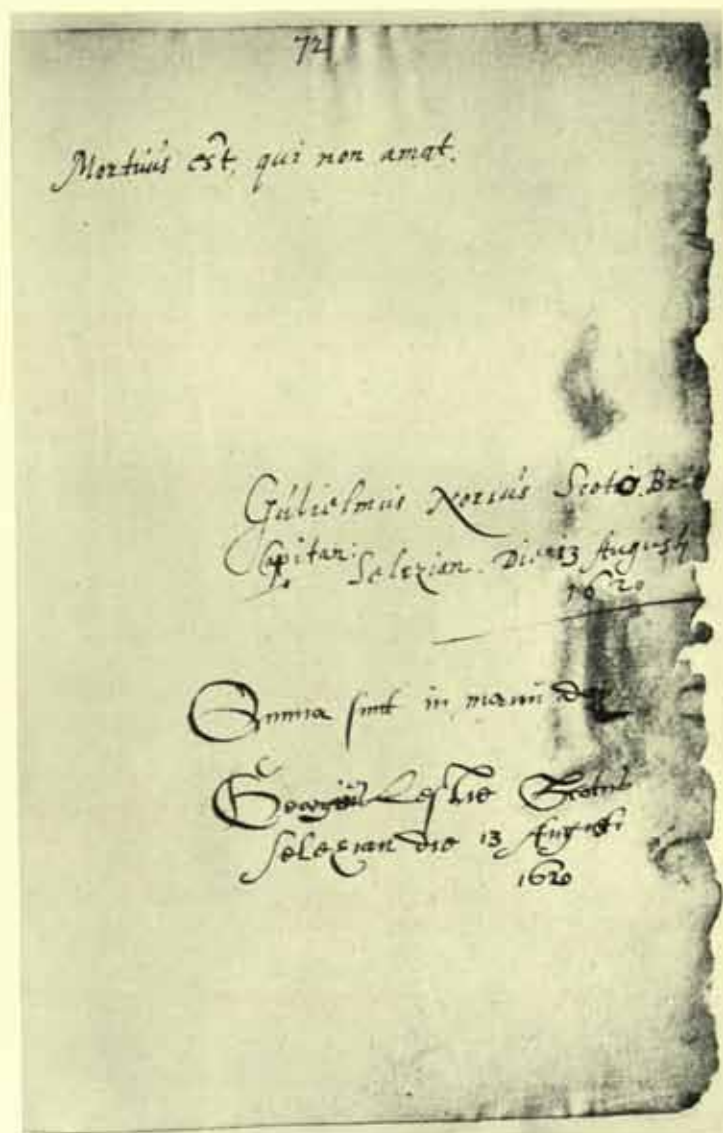 72
Mortuus est. qui non amat.
Gulielmus Norius Scoto. Brit
Capitan: Selezian. Die 13 Augusti
1620
Omnia sunt in manu dei
Georgius Leslie Scotus
Selezian die 13 Augusti
1620